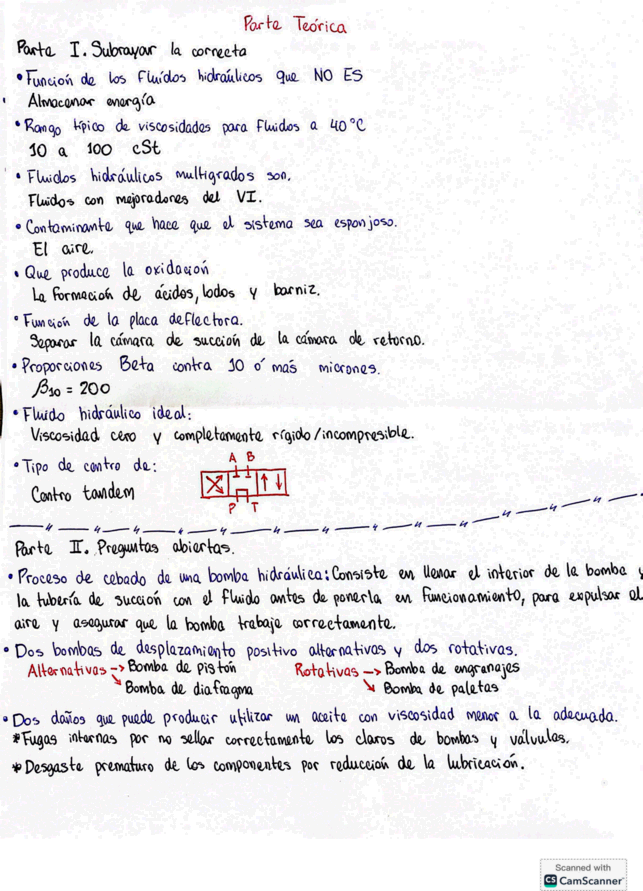 Parte Teórica
Parte I. Subrayar la correcta
• Función de los fluidos hidraúlicos que NO ES
Almacenar energía
• Rango típico de viscosidades para fluidos a 40°C
10 a 100 cSt
• Fluidos hidráulicos multigrados son.
Fluidos con mejoradores del VI.
• Contaminante que hace que el sistema sea esponjoso.
El aire.
• Que produce la oxidación
La formación de ácidos, lodos y barniz.
• Función de la placa deflectora.
Separar la cámara de succión de la cámara de retorno.
• Proporciones Beta contra 10 ó más micrones.
β10 = 200
• Fluido hidráulico ideal:
Viscosidad cero y completamente rígido/incompresible.
• Tipo de centro de:
A B
Centro tandem
P T
Parte II. Preguntas abiertas.
• Proceso de cebado de una bomba hidráulica: Consiste en llenar el interior de la bomba y
la tubería de succión con el fluido antes de ponerla en funcionamiento, para expulsar el
aire y asegurar que la bomba trabaje correctamente.
• Dos bombas de desplazamiento positivo alternativas y dos rotativas.
Alternativas → Bomba de pistón Rotativas → Bomba de engranajes
↘ Bomba de diafragma ↘ Bomba de paletas
• Dos daños que puede producir utilizar un aceite con viscosidad menor a la adecuada.
* Fugas internas por no sellar correctamente los claros de bombas y válvulas.
* Desgaste prematuro de los componentes por reducción de la lubricación.
Scanned with
CS CamScanner